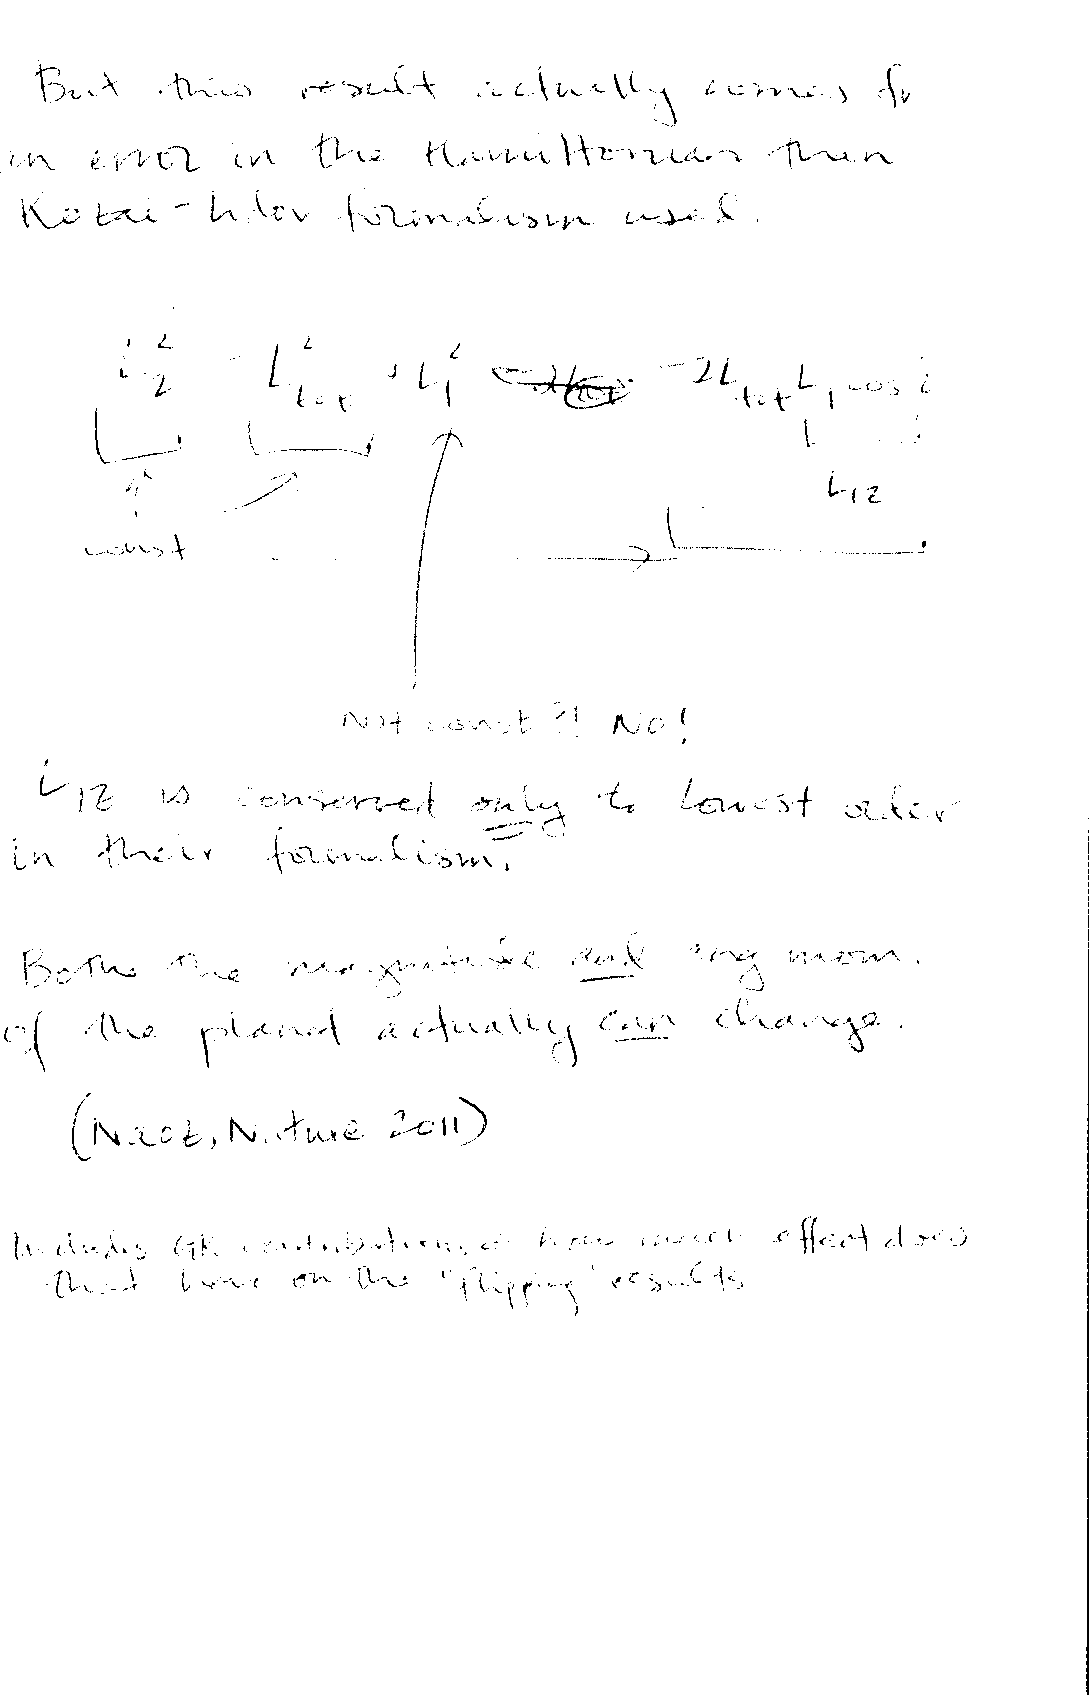 But this result actually comes fr
in error in the Hamiltonian then
Kozai - Lidov formalism used.
L₂² = L²tot + L₁² -2Ltot L₁ cos i
L1z
const
Not const?! No!
L1z is conserved only to lowest order
in their formalism.
Bothe the magnitude and ang mom.
of the planet actually can change.
(Naoz, Nature 2011)
Includes GR contributions, how much effect does
that have on the "flipping" results